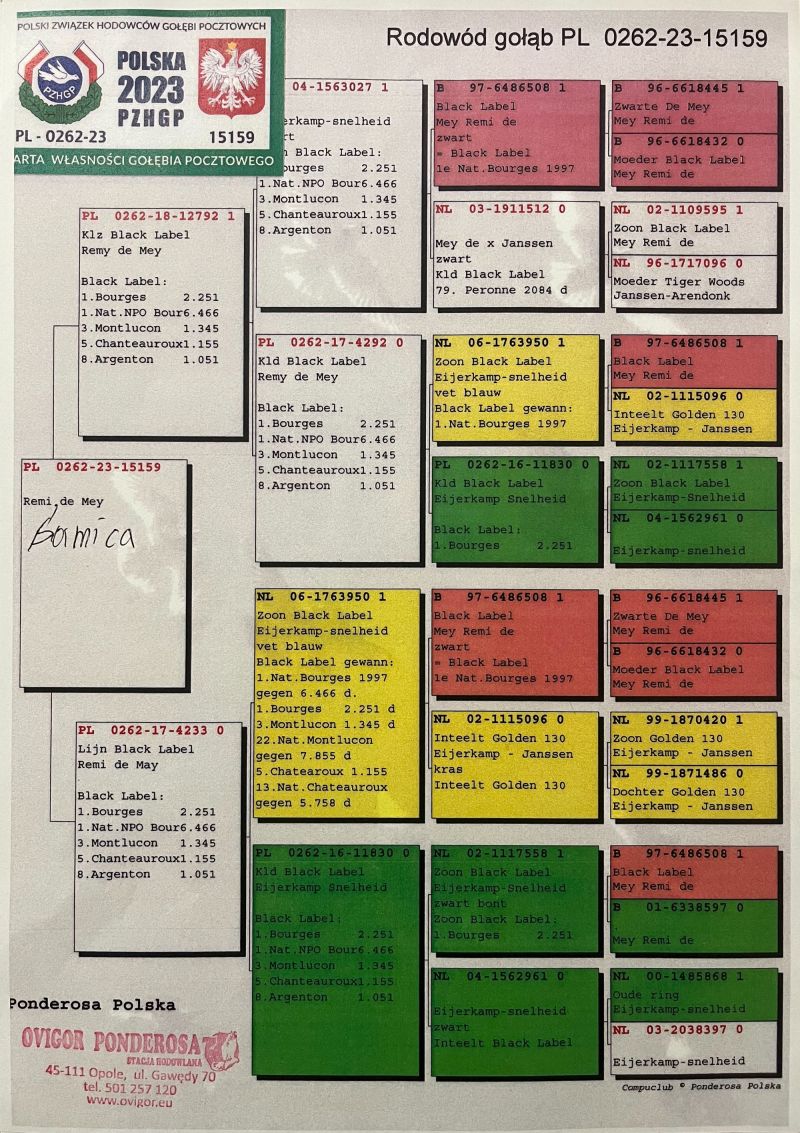 Rodowód gołąb PL 0262-23-15159
POLSKI ZWIĄZEK HODOWCÓW GOŁĘBI POCZTOWYCH
PZHGP
POLSKA
2023
PZHGP
PL - 0262-23 15159
ARTA WŁASNOŚCI GOŁĘBIA POCZTOWEGO
PL 0262-23-15159
Remi de Mey
PL 0262-18-12792 1
Klz Black Label
Remy de Mey
Black Label:
1.Bourges 2.251
1.Nat.NPO Bour6.466
3.Montlucon 1.345
5.Chanteauroux1.155
8.Argenton 1.051
PL 0262-17-4233 0
Lijn Black Label
Remi de May
Black Label:
1.Bourges 2.251
1.Nat.NPO Bour6.466
3.Montlucon 1.345
5.Chanteauroux1.155
8.Argenton 1.051
04-1563027 1
jerkamp-snelheid
rt
n Black Label:
ourges 2.251
1.Nat.NPO Bour6.466
3.Montlucon 1.345
5.Chanteauroux1.155
8.Argenton 1.051
PL 0262-17-4292 0
Kld Black Label
Remy de Mey
Black Label:
1.Bourges 2.251
1.Nat.NPO Bour6.466
3.Montlucon 1.345
5.Chanteauroux1.155
8.Argenton 1.051
NL 06-1763950 1
Zoon Black Label
Eijerkamp-snelheid
vet blauw
Black Label gewann:
1.Nat.Bourges 1997
gegen 6.466 d.
1.Bourges 2.251 d
3.Montlucon 1.345 d
22.Nat.Montlucon
gegen 7.855 d
5.Chatearoux 1.155
13.Nat.Chateauroux
gegen 5.758 d
PL 0262-16-11830 0
Kld Black Label
Eijerkamp Snelheid
Black Label:
1.Bourges 2.251
1.Nat.NPO Bour6.466
3.Montlucon 1.345
5.Chanteauroux1.155
8.Argenton 1.051
B 97-6486508 1
Black Label
Mey Remi de
zwart
= Black Label
1e Nat.Bourges 1997
NL 03-1911512 0
Mey de x Janssen
zwart
Kld Black Label
79. Peronne 2084 d
NL 06-1763950 1
Zoon Black Label
Eijerkamp-snelheid
vet blauw
Black Label gewann:
1.Nat.Bourges 1997
PL 0262-16-11830 0
Kld Black Label
Eijerkamp Snelheid
Black Label:
1.Bourges 2.251
B 97-6486508 1
Black Label
Mey Remi de
zwart
= Black Label
1e Nat.Bourges 1997
NL 02-1115096 0
Inteelt Golden 130
Eijerkamp - Janssen
kras
Inteelt Golden 130
NL 02-1117558 1
Zoon Black Label
Eijerkamp-Snelheid
zwart bont
Zoon Black Label:
1.Bourges 2.251
NL 04-1562961 0
Eijerkamp-snelheid
zwart
Inteelt Black Label
B 96-6618445 1
Zwarte De Mey
Mey Remi de
B 96-6618432 0
Moeder Black Label
Mey Remi de
NL 02-1109595 1
Zoon Black Label
Mey Remi de
NL 96-1717096 0
Moeder Tiger Woods
Janssen-Arendonk
B 97-6486508 1
Black Label
Mey Remi de
NL 02-1115096 0
Inteelt Golden 130
Eijerkamp - Janssen
NL 02-1117558 1
Zoon Black Label
Eijerkamp-Snelheid
NL 04-1562961 0
Eijerkamp-snelheid
B 96-6618445 1
Zwarte De Mey
Mey Remi de
B 96-6618432 0
Moeder Black Label
Mey Remi de
NL 99-1870420 1
Zoon Golden 130
Eijerkamp - Janssen
NL 99-1871486 0
Dochter Golden 130
Eijerkamp - Janssen
B 97-6486508 1
Black Label
Mey Remi de
B 01-6338597 0
Mey Remi de
NL 00-1485868 1
Oude ring
Eijerkamp-snelheid
NL 03-2038397 0
Eijerkamp-snelheid
Ponderosa Polska
OVIGOR PONDEROSA
STACJA HODOWLANA
45-111 Opole, ul. Gawędy 70
tel. 501 257 120
www.ovigor.eu
Compuclub © Ponderosa Polska